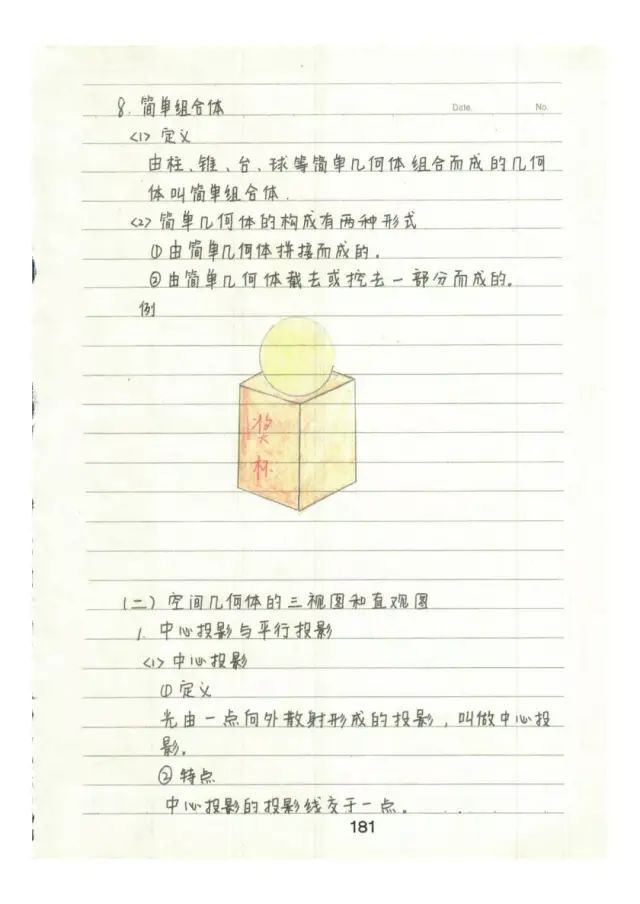 Date.
No.
8. 简单组合体
<1> 定义
由柱、锥、台、球等简单几何体组合而成的几何
体叫简单组合体.
<2> 简单几何体的构成有两种形式
①由简单几何体拼接而成的.
②由简单几何体截去或挖去一部分而成的。
例
奖
杯
(二) 空间几何体的三视图和直观图
1. 中心投影与平行投影
<1> 中心投影
① 定义
光由一点向外散射形成的投影, 叫做中心投
影。
② 特点
中心投影的投影线交于一点.
181